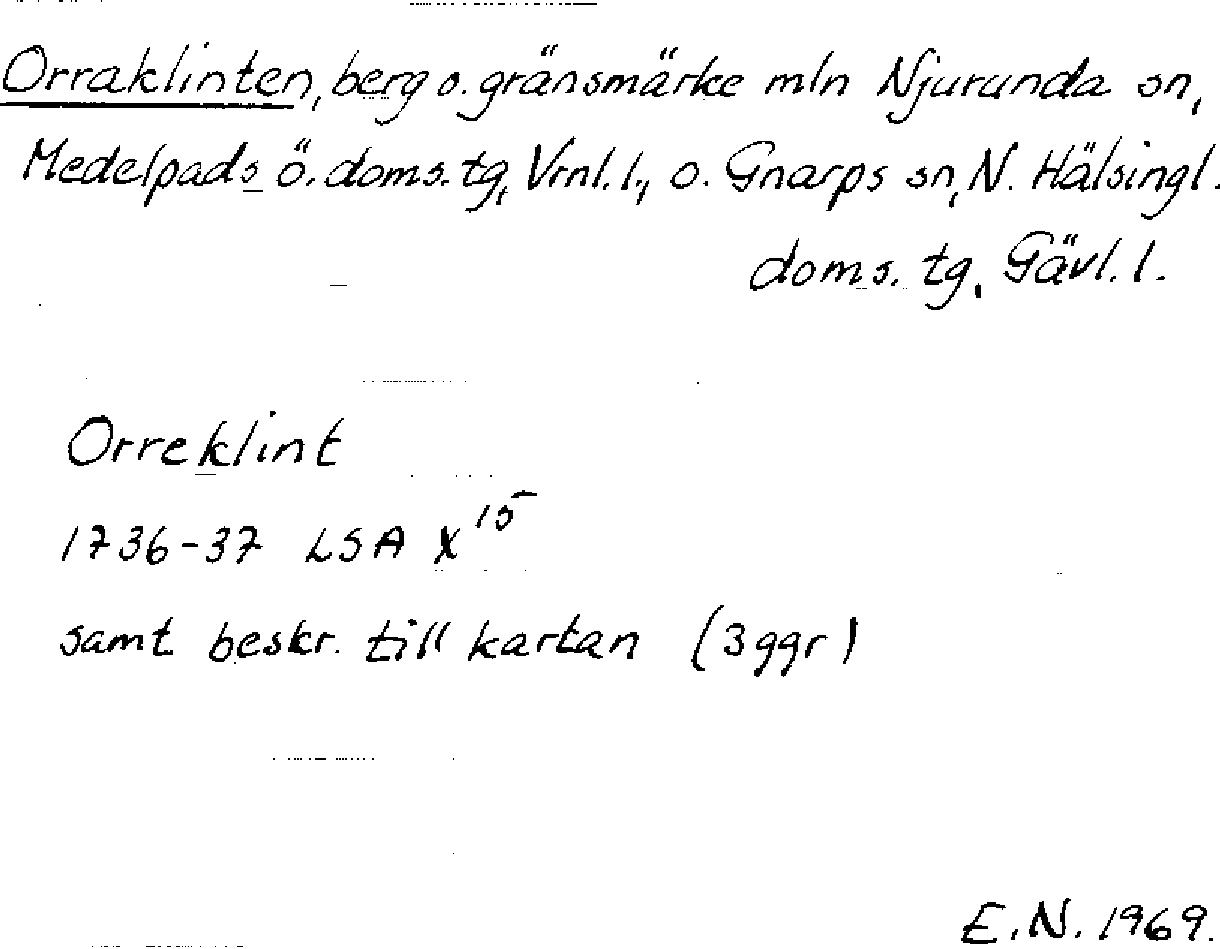 Orraklinten, berg o. gränsmärke mln Njurunda sn,
Medelpads ö. doms. tg, Vrnl. l., o. Gnarps sn, N. Hälsingl.
doms. tg, Gävl. l.
Orreklint
1736-37 LSA X 15
samt beskr. till kartan (3 ggr)
E.N. 1969.